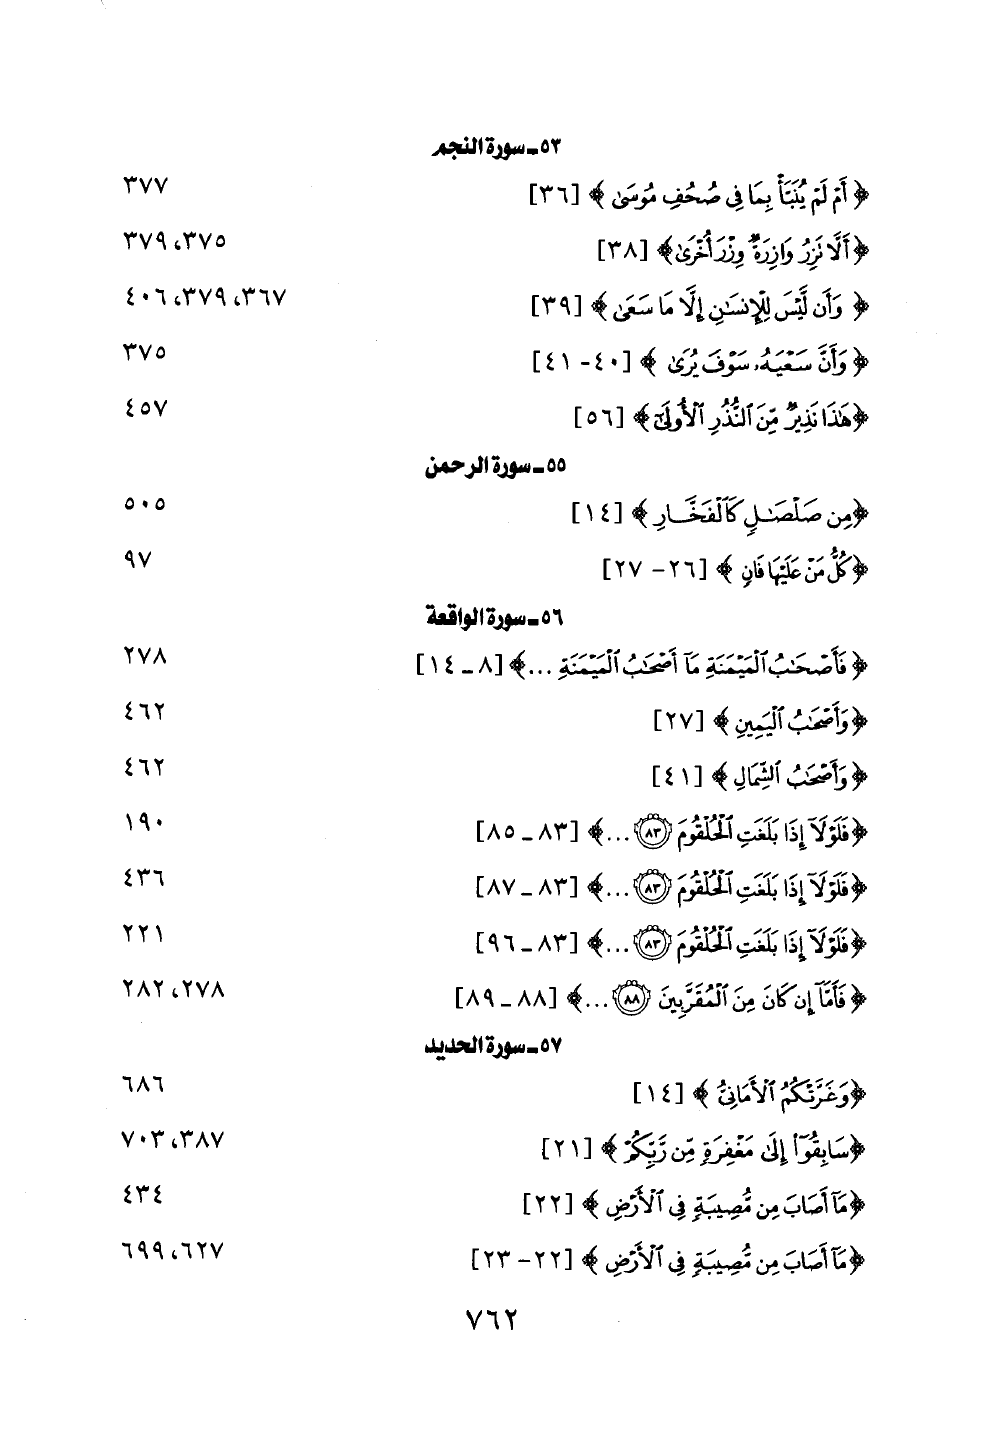 ٥٣ـ سورة النجم
﴿ أَمْ لَمْ يُنَبَّأْ بِمَا فِي صُحُفِ مُوسَىٰ ﴾ [٣٦] ٣٧٧
﴿أَلَّا تَزِرُ وَازِرَةٌ وِزْرَ أُخْرَىٰ﴾ [٣٨] ٣٧٥، ٣٧٩
﴿ وَأَن لَّيْسَ لِلْإِنسَـٰنِ إِلَّا مَا سَعَىٰ ﴾ [٣٩] ٣٦٧، ٣٧٩، ٤٠٦
﴿ وَأَنَّ سَعْيَهُۥ سَوْفَ يُرَىٰ ﴾ [٤٠ - ٤١] ٣٧٥
﴿هَـٰذَا نَذِيرٌ مِّنَ ٱلنُّذُرِ ٱلْأُولَىٰٓ﴾ [٥٦] ٤٥٧
٥٥ـ سورة الرحمن
﴿مِن صَلْصَـٰلٍ كَٱلْفَخَّارِ ﴾ [١٤] ٥٠٥
﴿كُلُّ مَنْ عَلَيْهَا فَانٍ ﴾ [٢٦ - ٢٧] ٩٧
٥٦ـ سورة الواقعة
﴿ فَأَصْحَـٰبُ ٱلْمَيْمَنَةِ مَآ أَصْحَـٰبُ ٱلْمَيْمَنَةِ ...﴾ [٨ ـ ١٤] ٢٧٨
﴿وَأَصْحَـٰبُ ٱلْيَمِينِ ﴾ [٢٧] ٤٦٢
﴿وَأَصْحَـٰبُ ٱلشِّمَالِ ﴾ [٤١] ٤٦٢
﴿فَلَوْلَآ إِذَا بَلَغَتِ ٱلْحُلْقُومَ ٨٣ ...﴾ [٨٣ ـ ٨٥] ١٩٠
﴿فَلَوْلَآ إِذَا بَلَغَتِ ٱلْحُلْقُومَ ٨٣ ...﴾ [٨٣ ـ ٨٧] ٤٣٦
﴿فَلَوْلَآ إِذَا بَلَغَتِ ٱلْحُلْقُومَ ٨٣ ...﴾ [٨٣ ـ ٩٦] ٢٢١
﴿ فَأَمَّآ إِن كَانَ مِنَ ٱلْمُقَرَّبِينَ ٨٨ ...﴾ [٨٨ ـ ٨٩] ٢٧٨، ٢٨٢
٥٧ـ سورة الحديد
﴿وَغَرَّتْكُمُ ٱلْأَمَانِيُّ ﴾ [١٤] ٦٨٦
﴿سَابِقُوٓا۟ إِلَىٰ مَغْفِرَةٍ مِّن رَّبِّكُمْ ﴾ [٢١] ٣٨٧، ٧٠٣
﴿مَآ أَصَابَ مِن مُّصِيبَةٍ فِي ٱلْأَرْضِ ﴾ [٢٢] ٤٣٤
﴿مَآ أَصَابَ مِن مُّصِيبَةٍ فِي ٱلْأَرْضِ ﴾ [٢٢ - ٢٣] ٦٢٧، ٦٩٩
٧٦٢